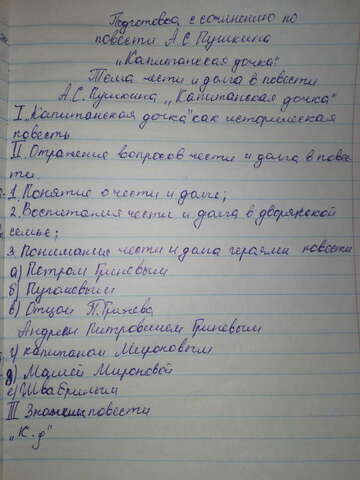 Подготовка с сочинению по
повести А.С.Пушкина
„Капитанская дочка"
Тема чести и долга в повести
А.С.Пушкина „Капитанская дочка"
I „Капитанская дочка" как историческая
повесть
II. Отражение вопросов чести и долга в повес
ти.
1. Понятие о чести и долге;
2. Воспитания чести и долга в дворянской
семье;
3. Понимание чести и долга героями повести
а) Петром Гриневым
б) Пугачевым
в) Отцом П.Гринева
Андреем Питровичем Гриневым
г) капитаном Мироновым
д) Машей Мироновой
е) Швабриным
III Значение повести
„К.д"